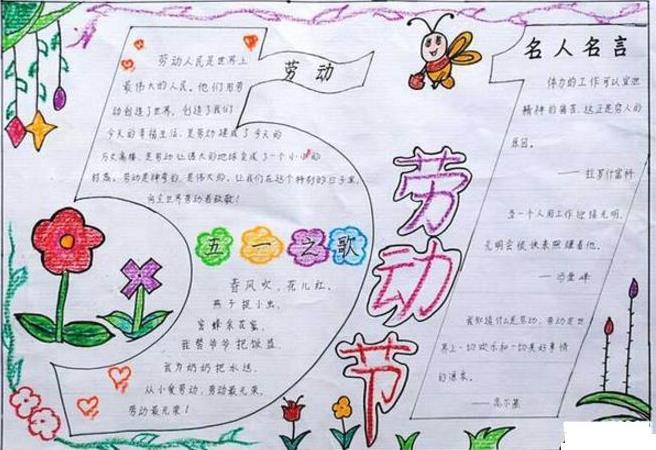 劳动
劳动人民是世界上
最伟大的人民。他们用劳
动创造了世界，创造了我们
今天的幸福生活，是劳动建成了今天的
万丈高楼，是劳动让偌大的地球变成了一个小小的
村落，劳动是神奇的，是伟大的，让我们在这个特别的日子里，
向全世界劳动者致敬！
五一之歌
春风吹，花儿红，
燕子捉小虫，
蜜蜂采花蜜，
我帮爷爷把饭盛，
我为奶奶把水送，
从小爱劳动，劳动最光荣，
劳动最光荣！
劳动节
名人名言
体力的工作可以宣泄
精神的痛苦，这正是穷人的
乐园。
——拉罗什富科
当一个人用工作迎接光明，
光明会很快来照耀着他。
——冯学峰
我知道什么是劳动，劳动是世
界上一切欢乐和一切美好事情
的源泉。
——高尔基